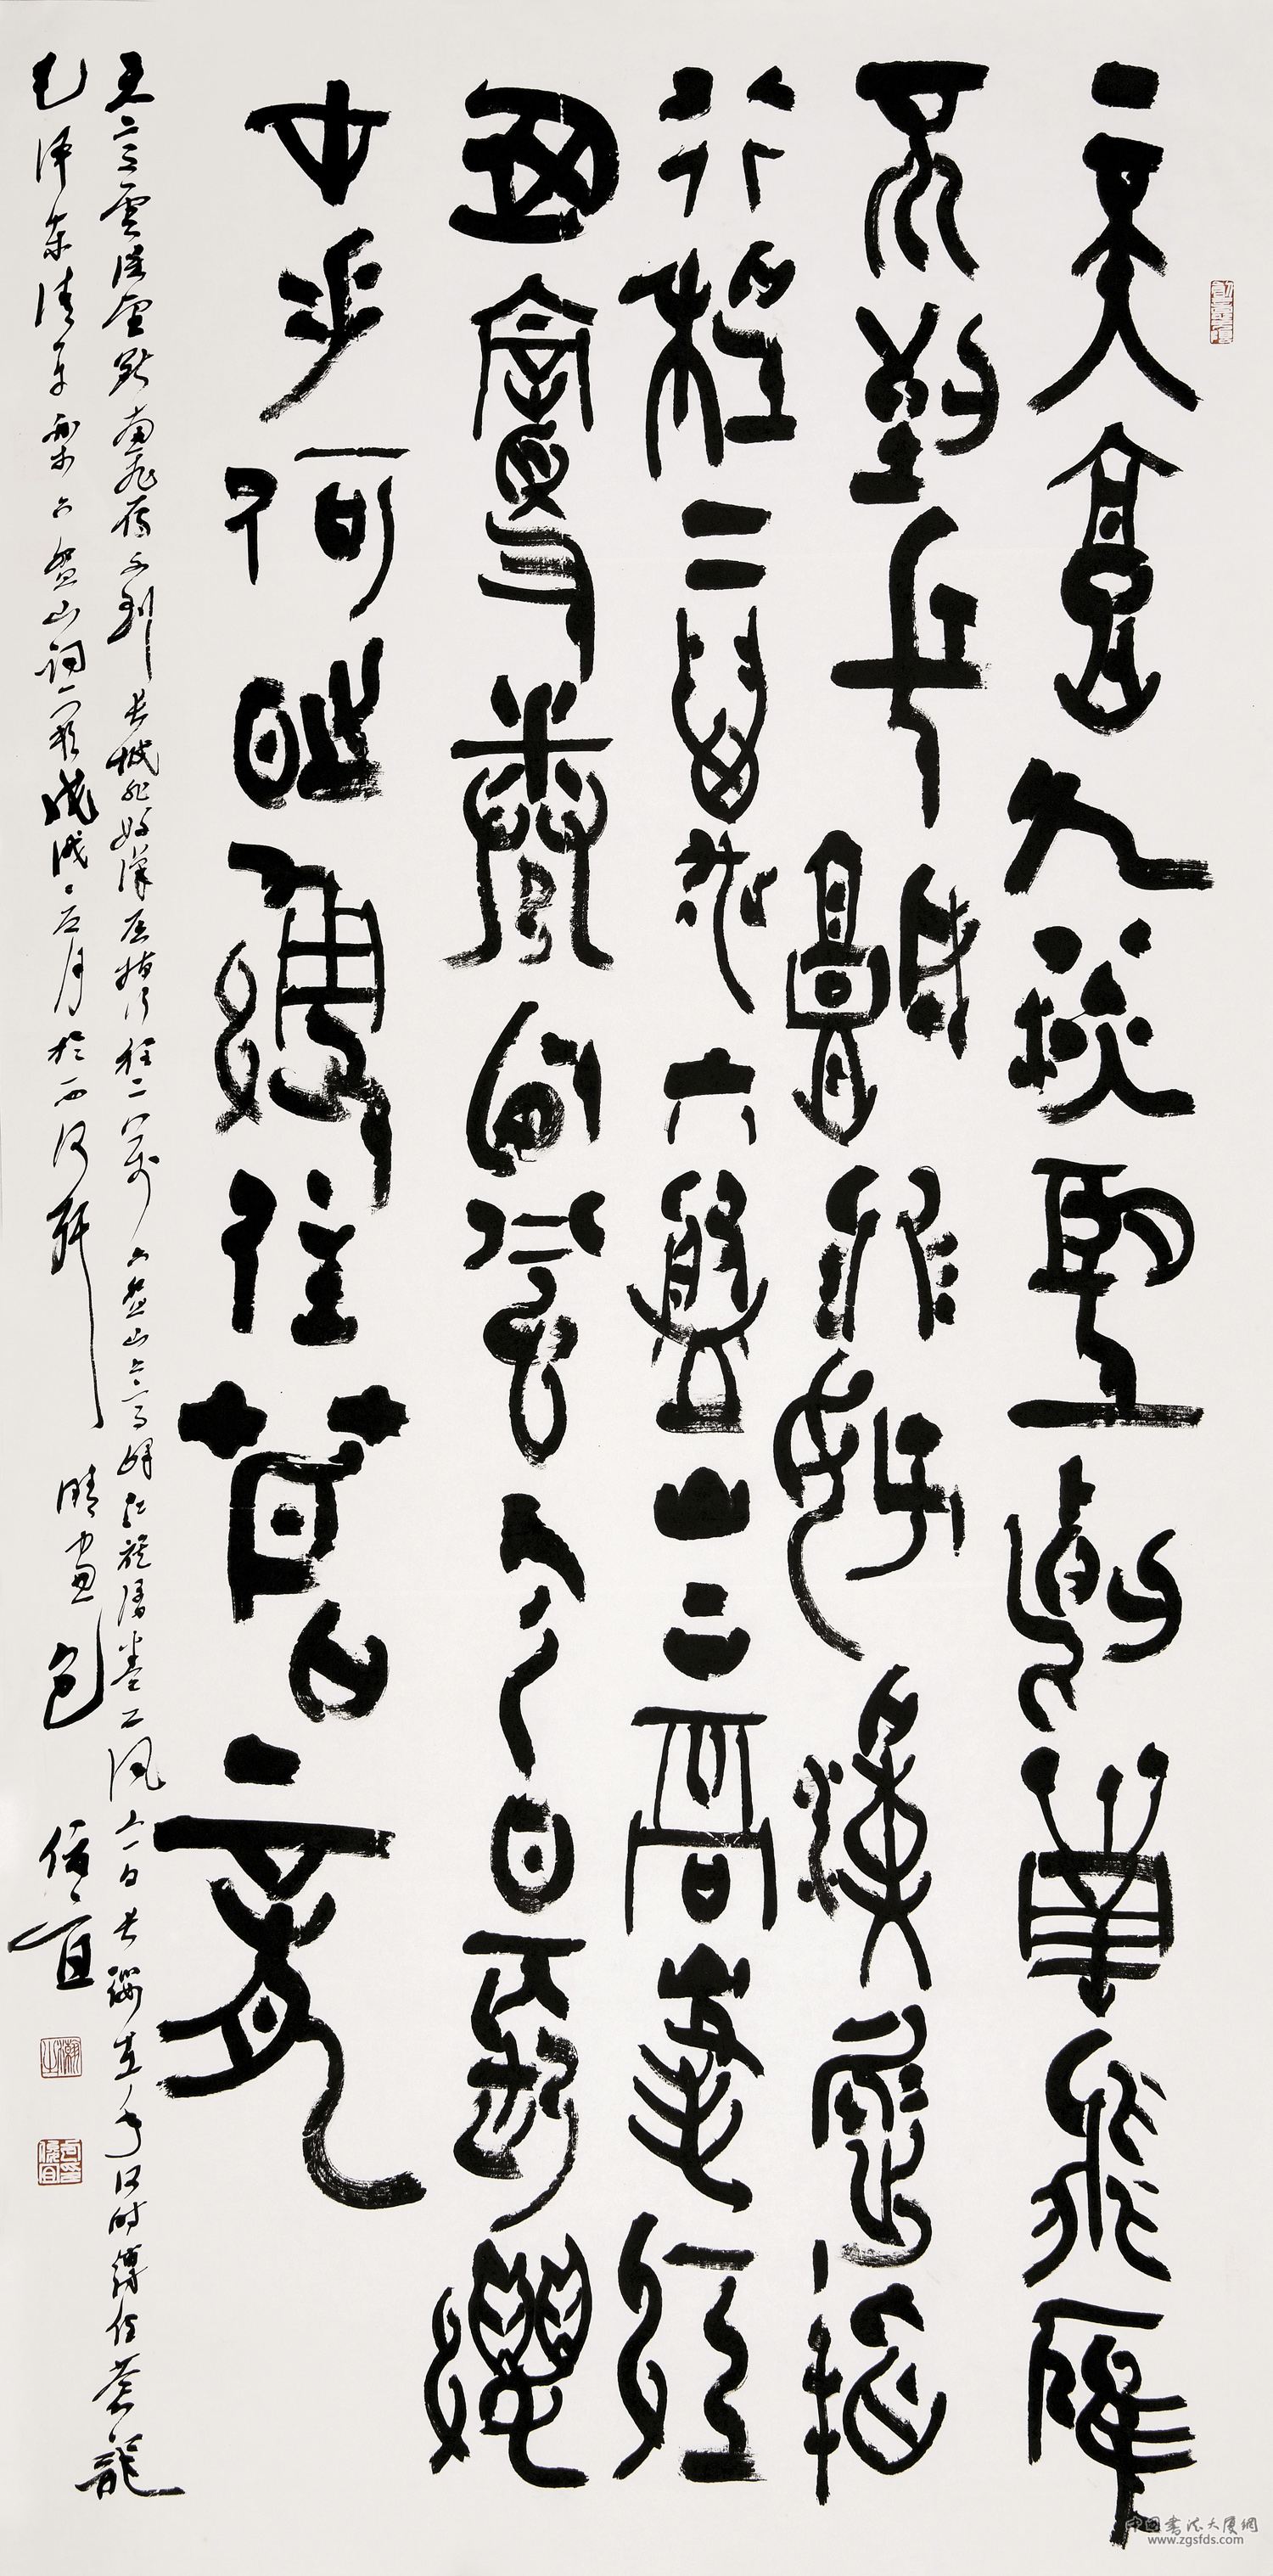 天高雲淡望斷南飛雁
不到長城非好漢屈指
行程二萬六盤山上高峰紅
旗漫卷西風今日長纓
在手何時縛住蒼龍
天高雲淡望斷南飛雁不到長城非好漢屈指行程二萬六盤山上高峰紅旗漫卷西風今日長纓在手何時縛住蒼龍
毛泽东清平樂六盤山詞一首戊戌之五月於西河軒晴窗
中国书法大厦網
www.zgsfds.com